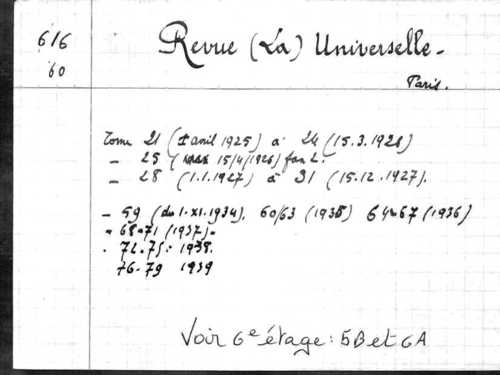 616
60
Revue (La) Universelle -
Paris.
Tome 21 (1 avril 1925) à 24 (15.3.1926)
- 25 ( 15/4/1926)
- 28 (1.1.1927) à 31 (15.12.1927).
- 59 (du 1.XI.1934). 60/63 (1935) 64-67 (1936)
- 68-71 (1937) -
- 72-75: 1938.
76-79 1939
Voir 6e étage: 5B et 6A